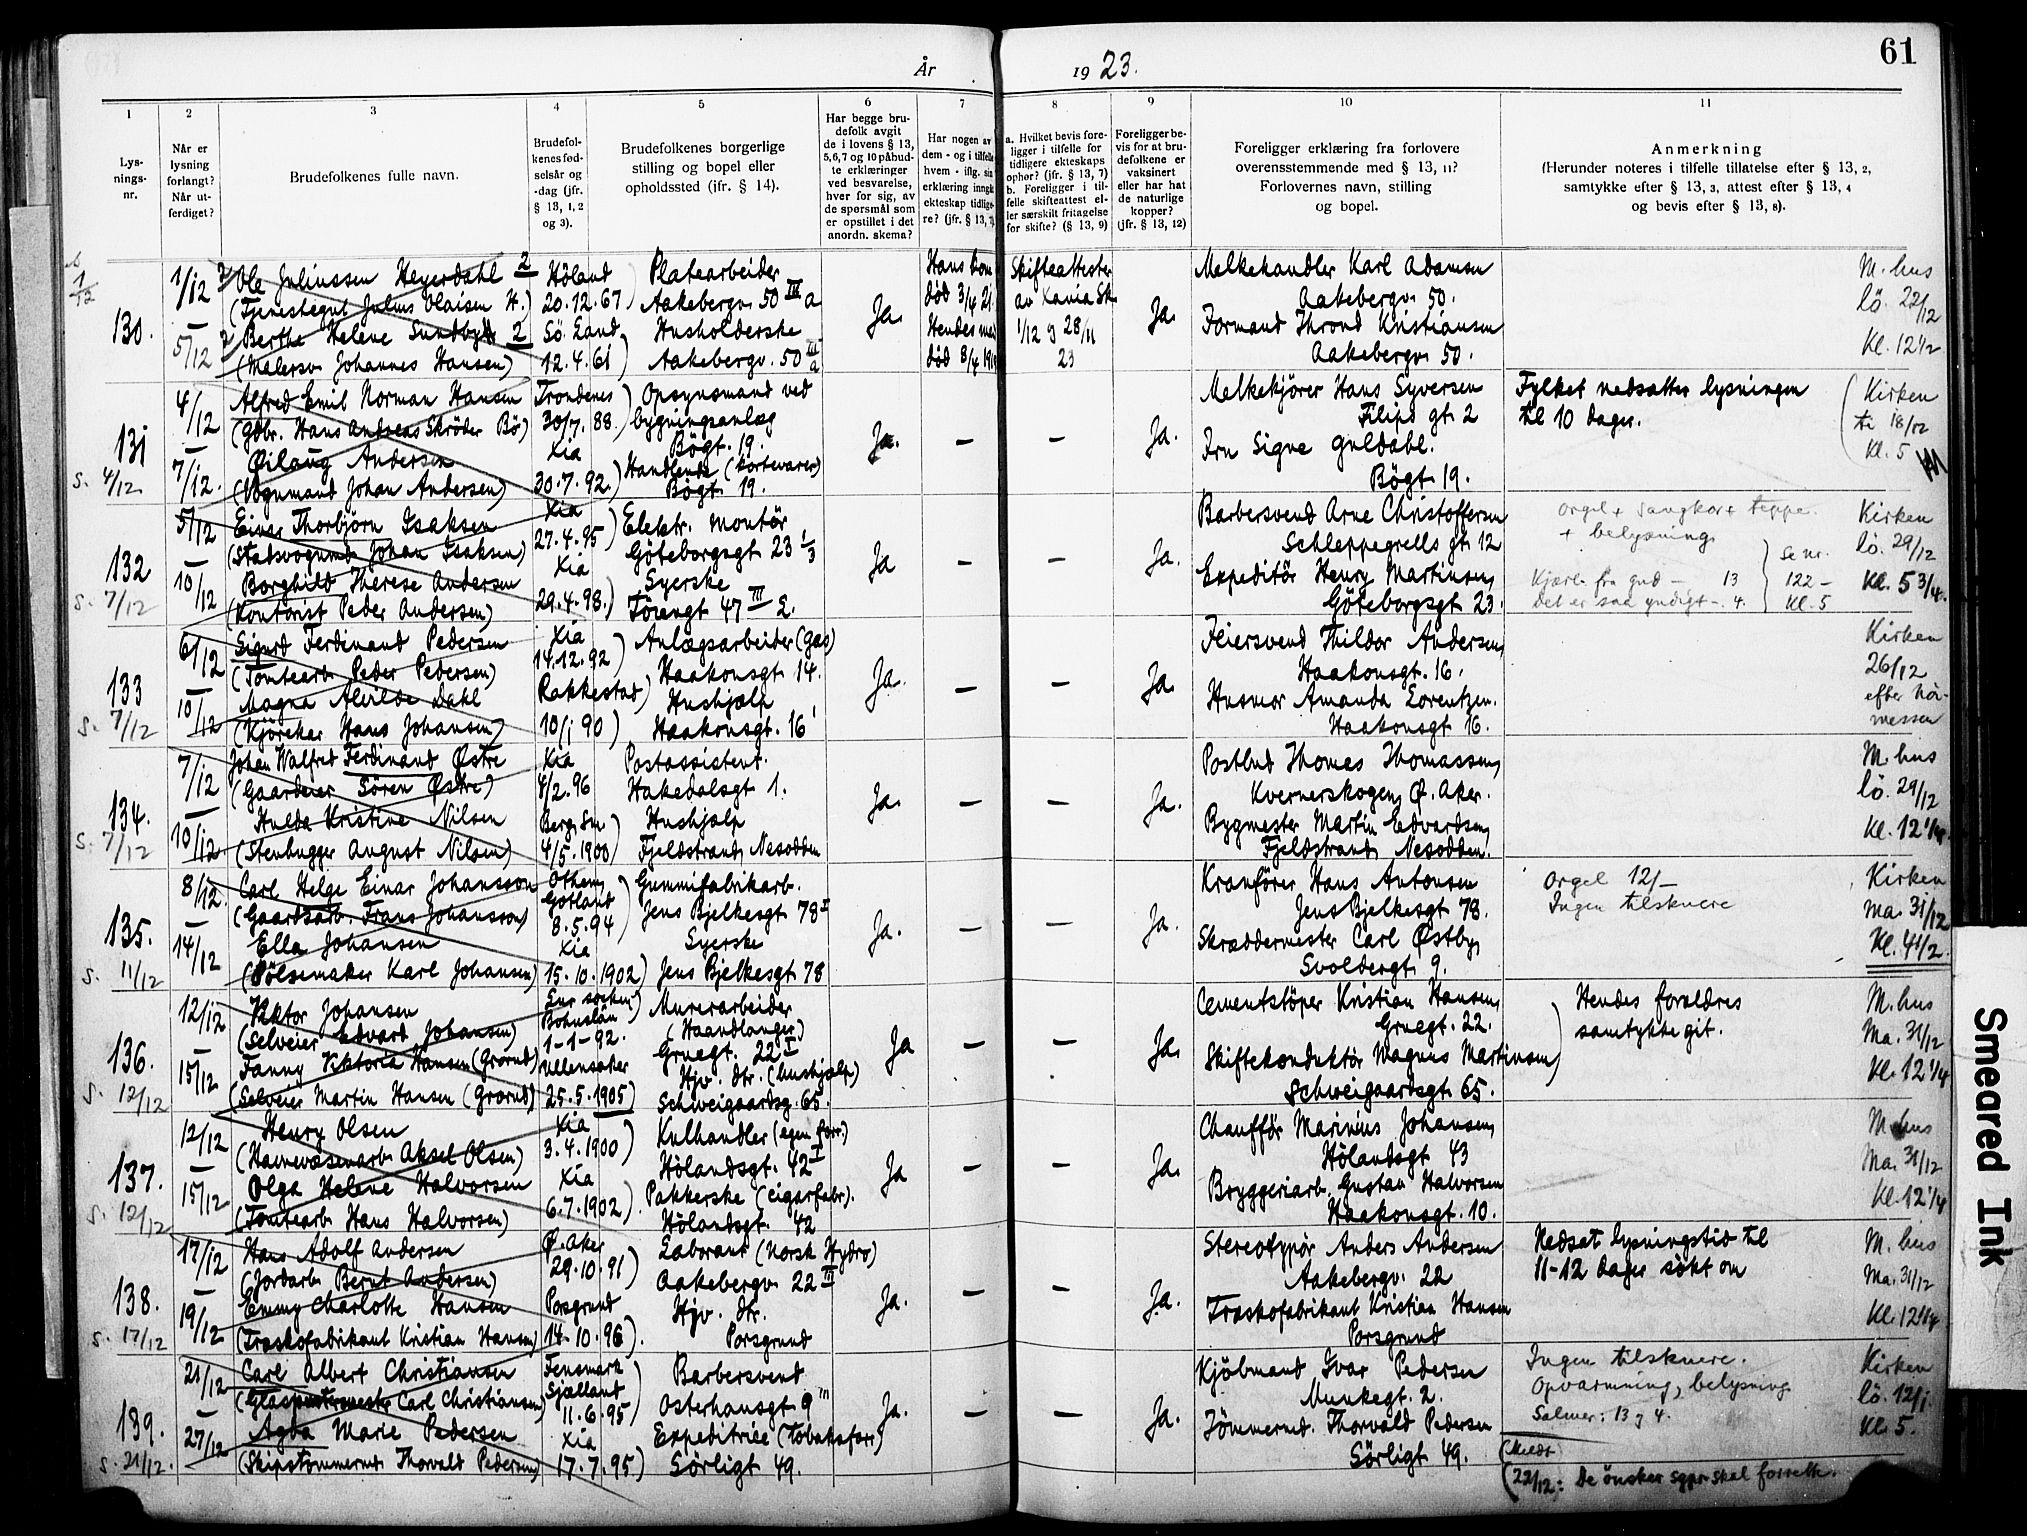 61
År 1923.
1 2 3 4 5 6 7 8 9 10 11
Lys-
nings-
nr.
Når er
lysning
forlangt?
Når ut-
ferdiget?
Brudefolkenes fulle navn.
Brudefol-
kenes fød-
selsår og
-dag (jfr.
§ 13, 1, 2
og 3).
Brudefolkenes borgerlige
stilling og bopel eller
opholdssted (jfr. § 14).
Har begge bru-
defolk avgit
de i lovens § 13,
5,6,7 og 10 påbud-
te erklæringer
ved besvarelse,
hver for sig, av
de spørsmål som
er opstillet i det
anordn. skema?
Har nogen av
dem - og i tilfelle
hvem - iflg. sin
erklæring inngå
ekteskap tidlige-
re? (jfr. § 13, 7)
a. Hvilket bevis fore-
ligger i tilfelle for
tidligere ekteskaps
ophør? (jfr. § 13, 7)
b. Foreligger i til-
felle skifteattest el-
ler særskilt fritagelse
for skifte? (§ 13, 9)
Foreligger be-
vis for at bru-
defolkene er
vaksinert
eller har hat
de naturlige
kopper?
(jfr. § 13, 12)
Foreligger erklæring fra forlovere
overensstemmende med § 13, 11?
Forlovernes navn, stilling
og bopel.
Anmerkning
(Herunder noteres i tilfelle tillatelse efter § 13, 2,
samtykke efter § 13, 3, attest efter § 13, 4
og bevis efter § 13, 8).
1/12
130.
1/12 – 5/12
Ole Juliussen Heyerdahl 2
(Tjenestegut Julius Olaisen H.)
Berthe Helene Sundbye 2
(Malersv. Johannes Hansen)
Höland
20.12.67)
Sö. Land
12.4.61)
Platearbeider
Aakebergv. 50 III a
Husholderske
Aakebergv. 50 III a
Ja.
Hans kone
död 3/4 21.
Hendes man
död 8/4 191
Skifteattester
av Kania Sk.
1/12 g 28/11
23
Ja.
Melkehandler Karl Adamsen
Aakebergv. 50.
Formand Thrond Kristiansen
Aakebergv. 50.
M. hus
lö. 22/12
Kl. 12 1/2
131
s. 4/12
4/12 – 7/12.
Alfred Emil Norman Hansen
(Gdbr. Hans Andreas Skröder Bö)
Øilaug Andersen
(Vognmand Johan Andersen)
Trondenes
30/7. 88.)
Kia
30.7.92.)
Opsynsmand ved
bygningsanlæg
Bögt. 19.
Handlende (kortevarer)
Bögt. 19.
Ja. – – Ja.
Melkekjörer Hans Syversen
Filips gt. 2
Fru Signe Guldahl.
Bögt. 19.
Fylket nedsatter lysningen
til 10 dager.
Kirken
ti 18/12
Kl. 5
132
s. 7/12
5/12 – 10/12
Einar Thorbjörn Isaksen
(Stadsvognmd. Johan Isaksen)
Borghild Therese Andersen
(Kontorist Peder Andersen)
Kia
27.4.95)
Kia
29.4.98.)
Elektr. montör
Göteborgsgt 23 1/3
Syerske
Töiengt 47 III 2.
Ja – – Ja.
Barbersvend Arne Christoffersen
Schleppegrells gt. 12
Expeditör Henry Martinsen,
Göteborgsgt 23.
Orgel + sangkor + teppe.
+ belysning.
Kjærl. fra gud – 13
Det er saa yndigt –. 4.
Se nr.
122 –
Kl. 5
Kirken
lö. 29/12
Kl. 5 3/4.
133
s. 7/12
6/12 – 10/12
Sigurd Ferdinand Pedersen
(Tomtearb. Peder Pedersen)
Magna Alvilde Dahl
(Kjörekar Hans Johansen)
Kia
14.12.92)
Rakkestad)
10/1 90)
Anlægsarbeider (gas)
Haakonsgt. 14.
Hushjælp
Haakonsgt. 16
Ja. – – Ja.
Feiersvend Thildor Andersen,
Haakonsgt. 16.
Husmor Amanda Lorentzen.
Haakonsgt. 16.
Kirken
26/12
efter hör-
messen
134.
s. 7/12
7/12 – 10/12
Johan Walfred Ferdinand Østre
(Gaardeier Sören Østre)
Hulda Kristine Nilsen
(Stenhugger August Nilsen)
Kia
4/2.96
Berg, Sm
4/5.1900)
Postassistent.
Hakedalsgt 1.
Hushjælp
Fjeldstrand, Nesodden
Ja. – – Ja.
Postbud Thomas Thomassen,
Kvernerskogen, Ø. Aker.
Bygmester Martin Edvardsen,
Fjeldstrand, Nesodden.
M. hus
lö. 29/12
Kl. 12 1/4.
135.
s. 11/12
8/12. – 14/12
Carl Helge Einar Johansson
(Gaardsarb. Frans Johansson)
Ella Johansen
(Pölsemaker Karl Johansen)
Othem,
Gotland
8.5.94)
Kia
15.10.1902)
Gummifabrikarb.
Jens Bjelkesgt 78 I
Syerske
Jens Bjelkesgt. 78
Ja. – – Ja.
Kranförer Hans Antonsen
Jens Bjelkesgt 78.
Skræddermester Carl Østby,
Svoldergt 9.
Orgel 12/–
Ingen tilskuere
Kirken
Ma. 31/12
Kl. 4 1/2.
136.
s. 12/12
12/12 – 15/12
Viktor Johansen
(Selveier Edvard Johansen)
Fanny Viktoria Hansen (Grorud)
(Selveier Martin Hansen (Grorud)
socken)
Bohuslän
1-1-92.
Ullensaker
25.5.1905)
Murerarbeider
(Haandlanger)
Gruegt. 22 I
Hjv. dtr. (hushjælp)
Schweigaardsg. 65.
Ja – – Ja.
Cementstöper Kristian Hansen,
Gruegt. 22.
Skiftekonduktör Magnus Martinsen,
Schweigaardsgt. 65.
Hendes forældres
samtykke git.
M. hus
Ma. 31/12
Kl. 12 1/4
137.
s. 12/12
12/12 – 15/12
Henry Olsen
(Havnevæsenarb. Aksel Olsen)
Olga Helene Halvorsen
(Tomtearb. Hans Halvorsen)
Kia
3.4.1900)
Kia
6.7.1902)
Kulhandler (egen forr.)
Hölandsgt. 42 I
Pakkerske (cigarfabr.)
Hölandsgt. 42
Ja – – Ja.
Chaufför Marinius Johansen,
Hölandsgt 43
Bryggeriarb. Gustav Halvorsen
Haakonsgt. 10.
M. hus
Ma. 31/12
Kl. 12 1/4
138.
s. 17/12
17/12 – 19/12
Hans Adolf Andersen
(Jordarb. Bernt Andersen)
Emmy Charlotte Hansen
(Træskofabrikant Kristian Hansen)
Ø. Aker
29.10.91)
Porsgrund
14.10.96).
Laborant (Norsk Hydro)
Aakebergv. 22 III
Hjv. dtr.
Porsgrund
Ja. – – Ja.
Stereotypör Anders Andersen
Aakebergv. 22
Træskofabrikant Kristian Hansen
Porsgrund
Nedsat lysningstid til
11-12 dager sökt om
M. hus
Ma. 31/12
Kl. 12 1/4
139.
s. 21/12.
21/12 – 27/12
Carl Albert Christiansen
(Glaspustermester Carl Christiansen)
Agda Marie Pedersen
(Skipstömmermd. Thorvald Pedersen)
Fensmark
Sjælland
11.6.95)
Kia
17.7.95)
Barbersvend
Osterhausgt 9 III
Expeditrice (tobaksforr)
Sörligt 49.
Ja. – – Ja.
Kjöbmand Ivar Pedersen
Munkegt. 2.
Tömmermd. Thorvald Pedersen
Sörligt 49.
Ingen tilskuere.
Opvarmning, belysning
Salmer: 13 g 4.
22/12: De önsker sgpr. skal forrette.
Kirken
lö. 12/1.
Kl. 5.
Smeared Ink